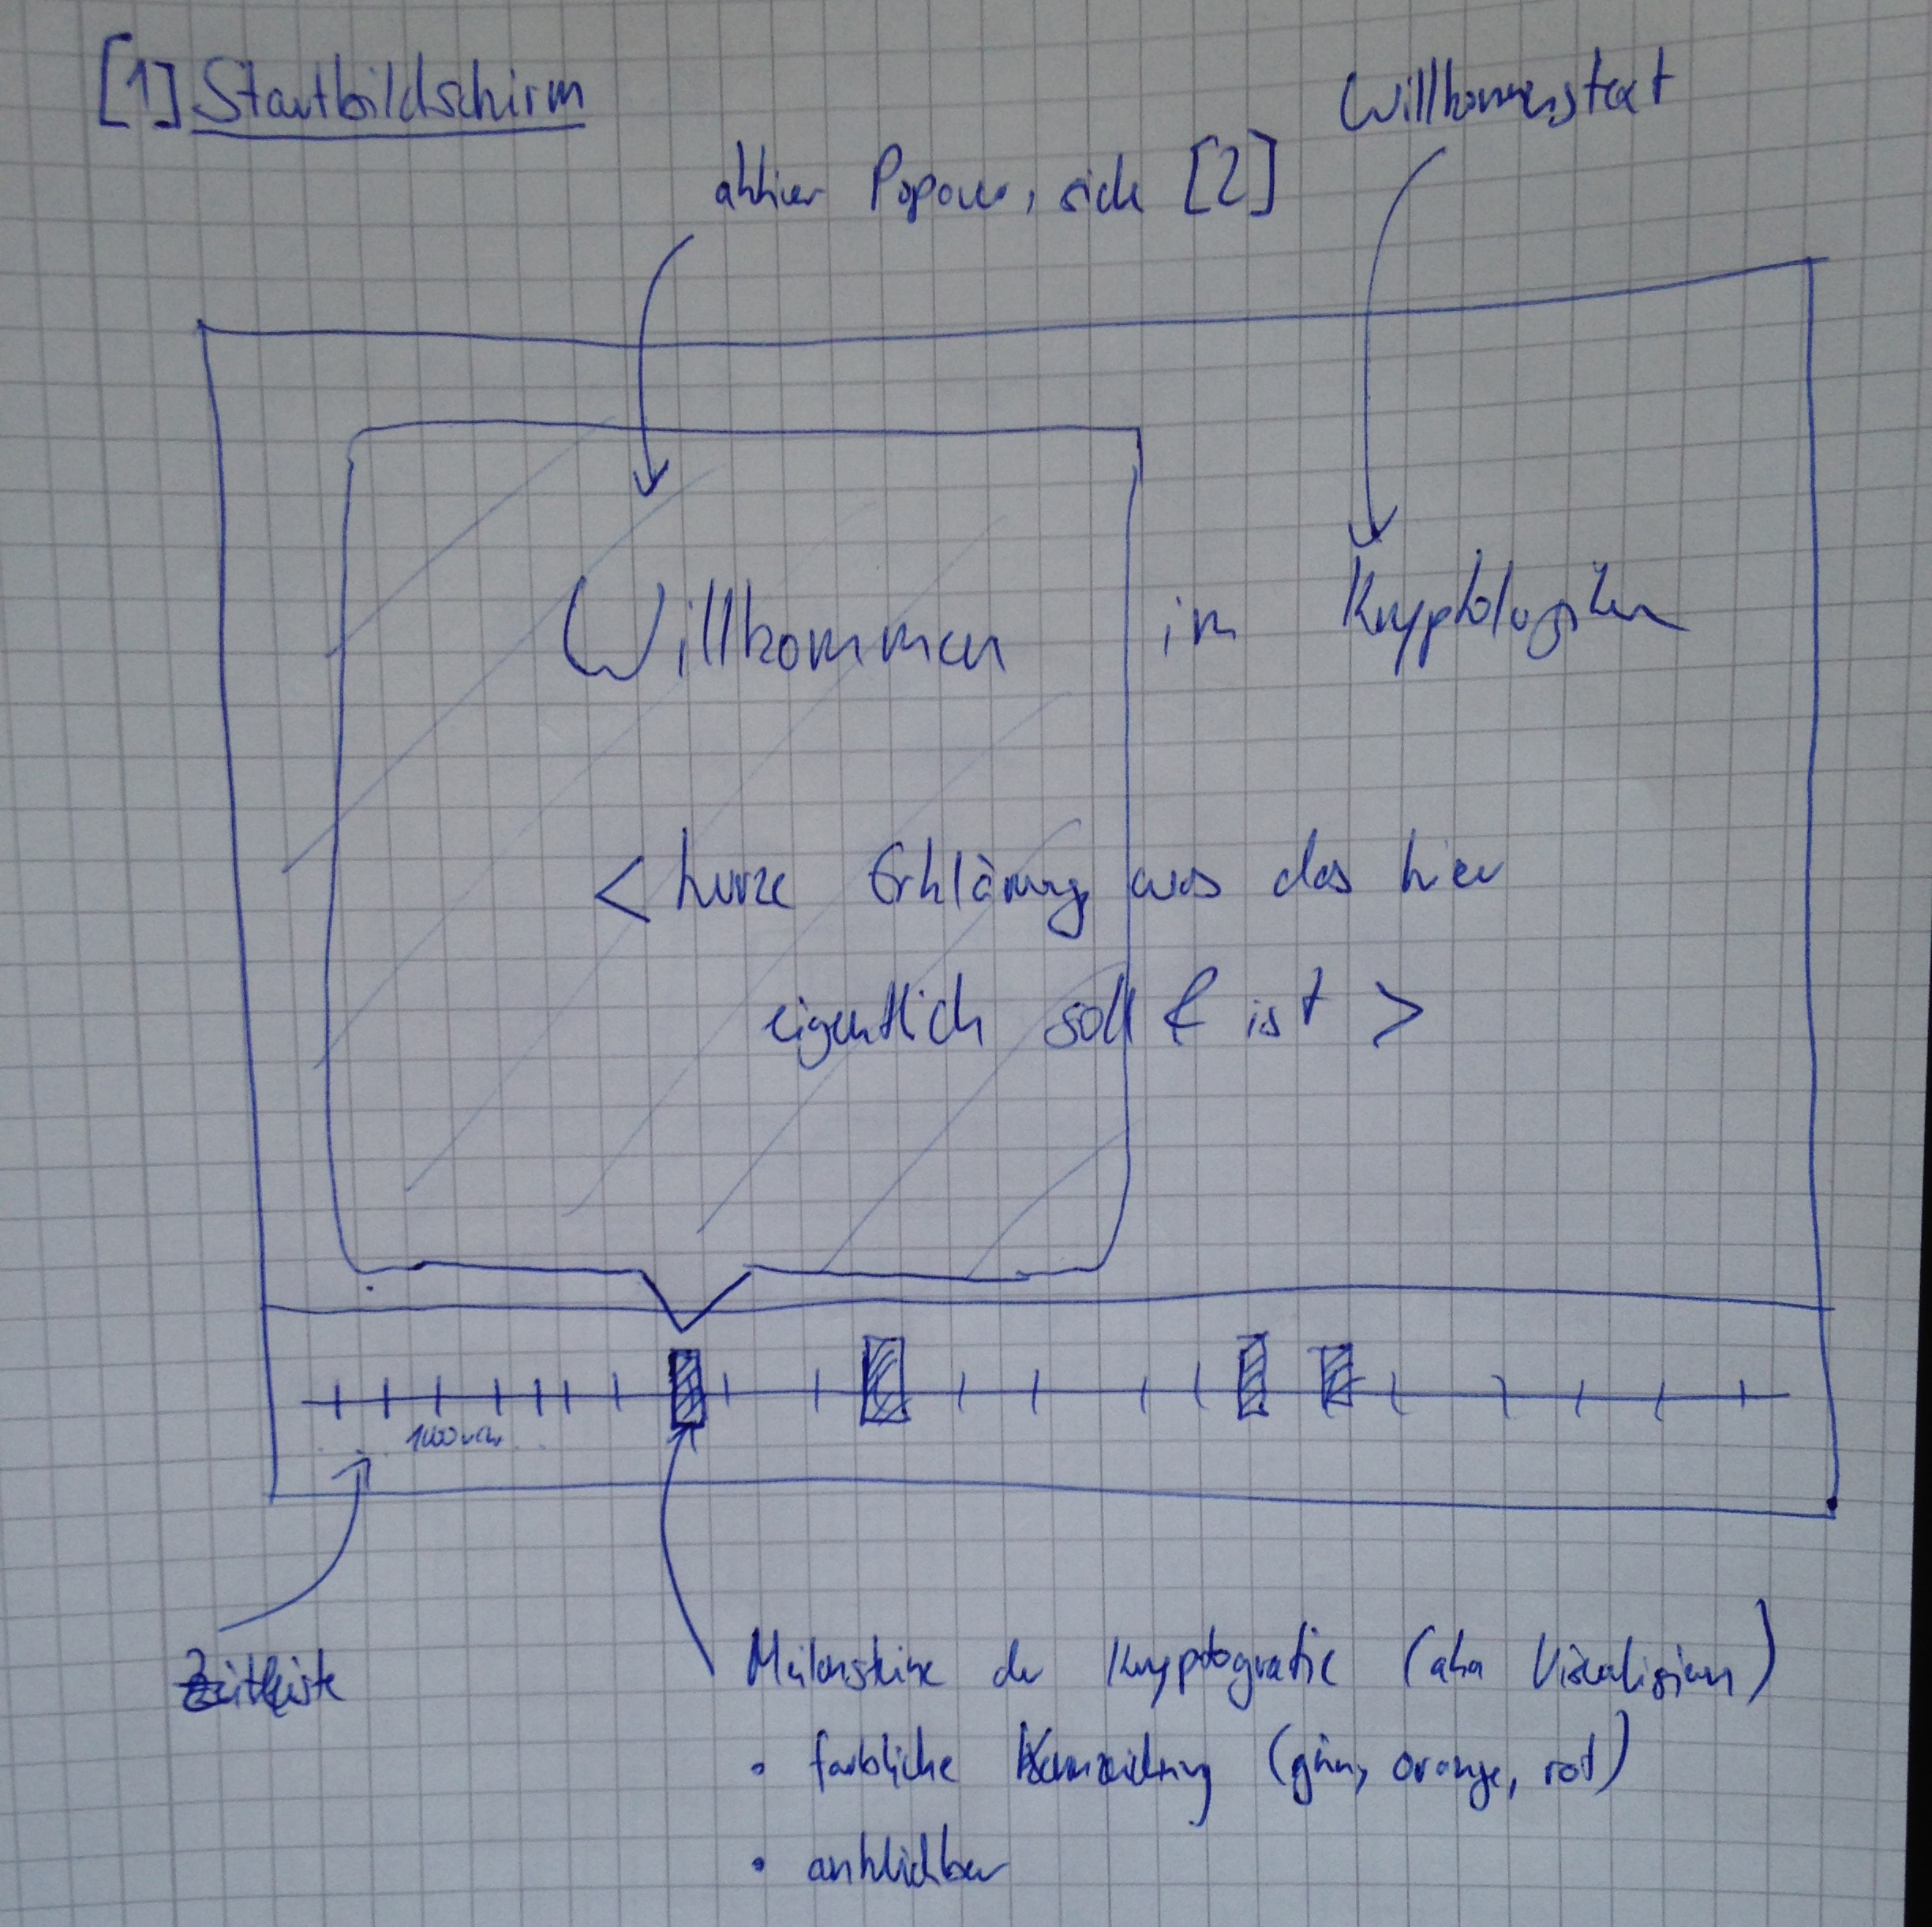 [1] Startbildschirm
Willkommenstext
aktiver Popover, siehe [2]
Willkommen im Kryptologikum
< kurze Erklärung was das hier
eigentlich soll & ist >
Zeitleiste
Meilensteine der Kryptografie (aka Visualisieren)
• farbliche Kennzeichnung (grün, orange, rot)
• anklickbar